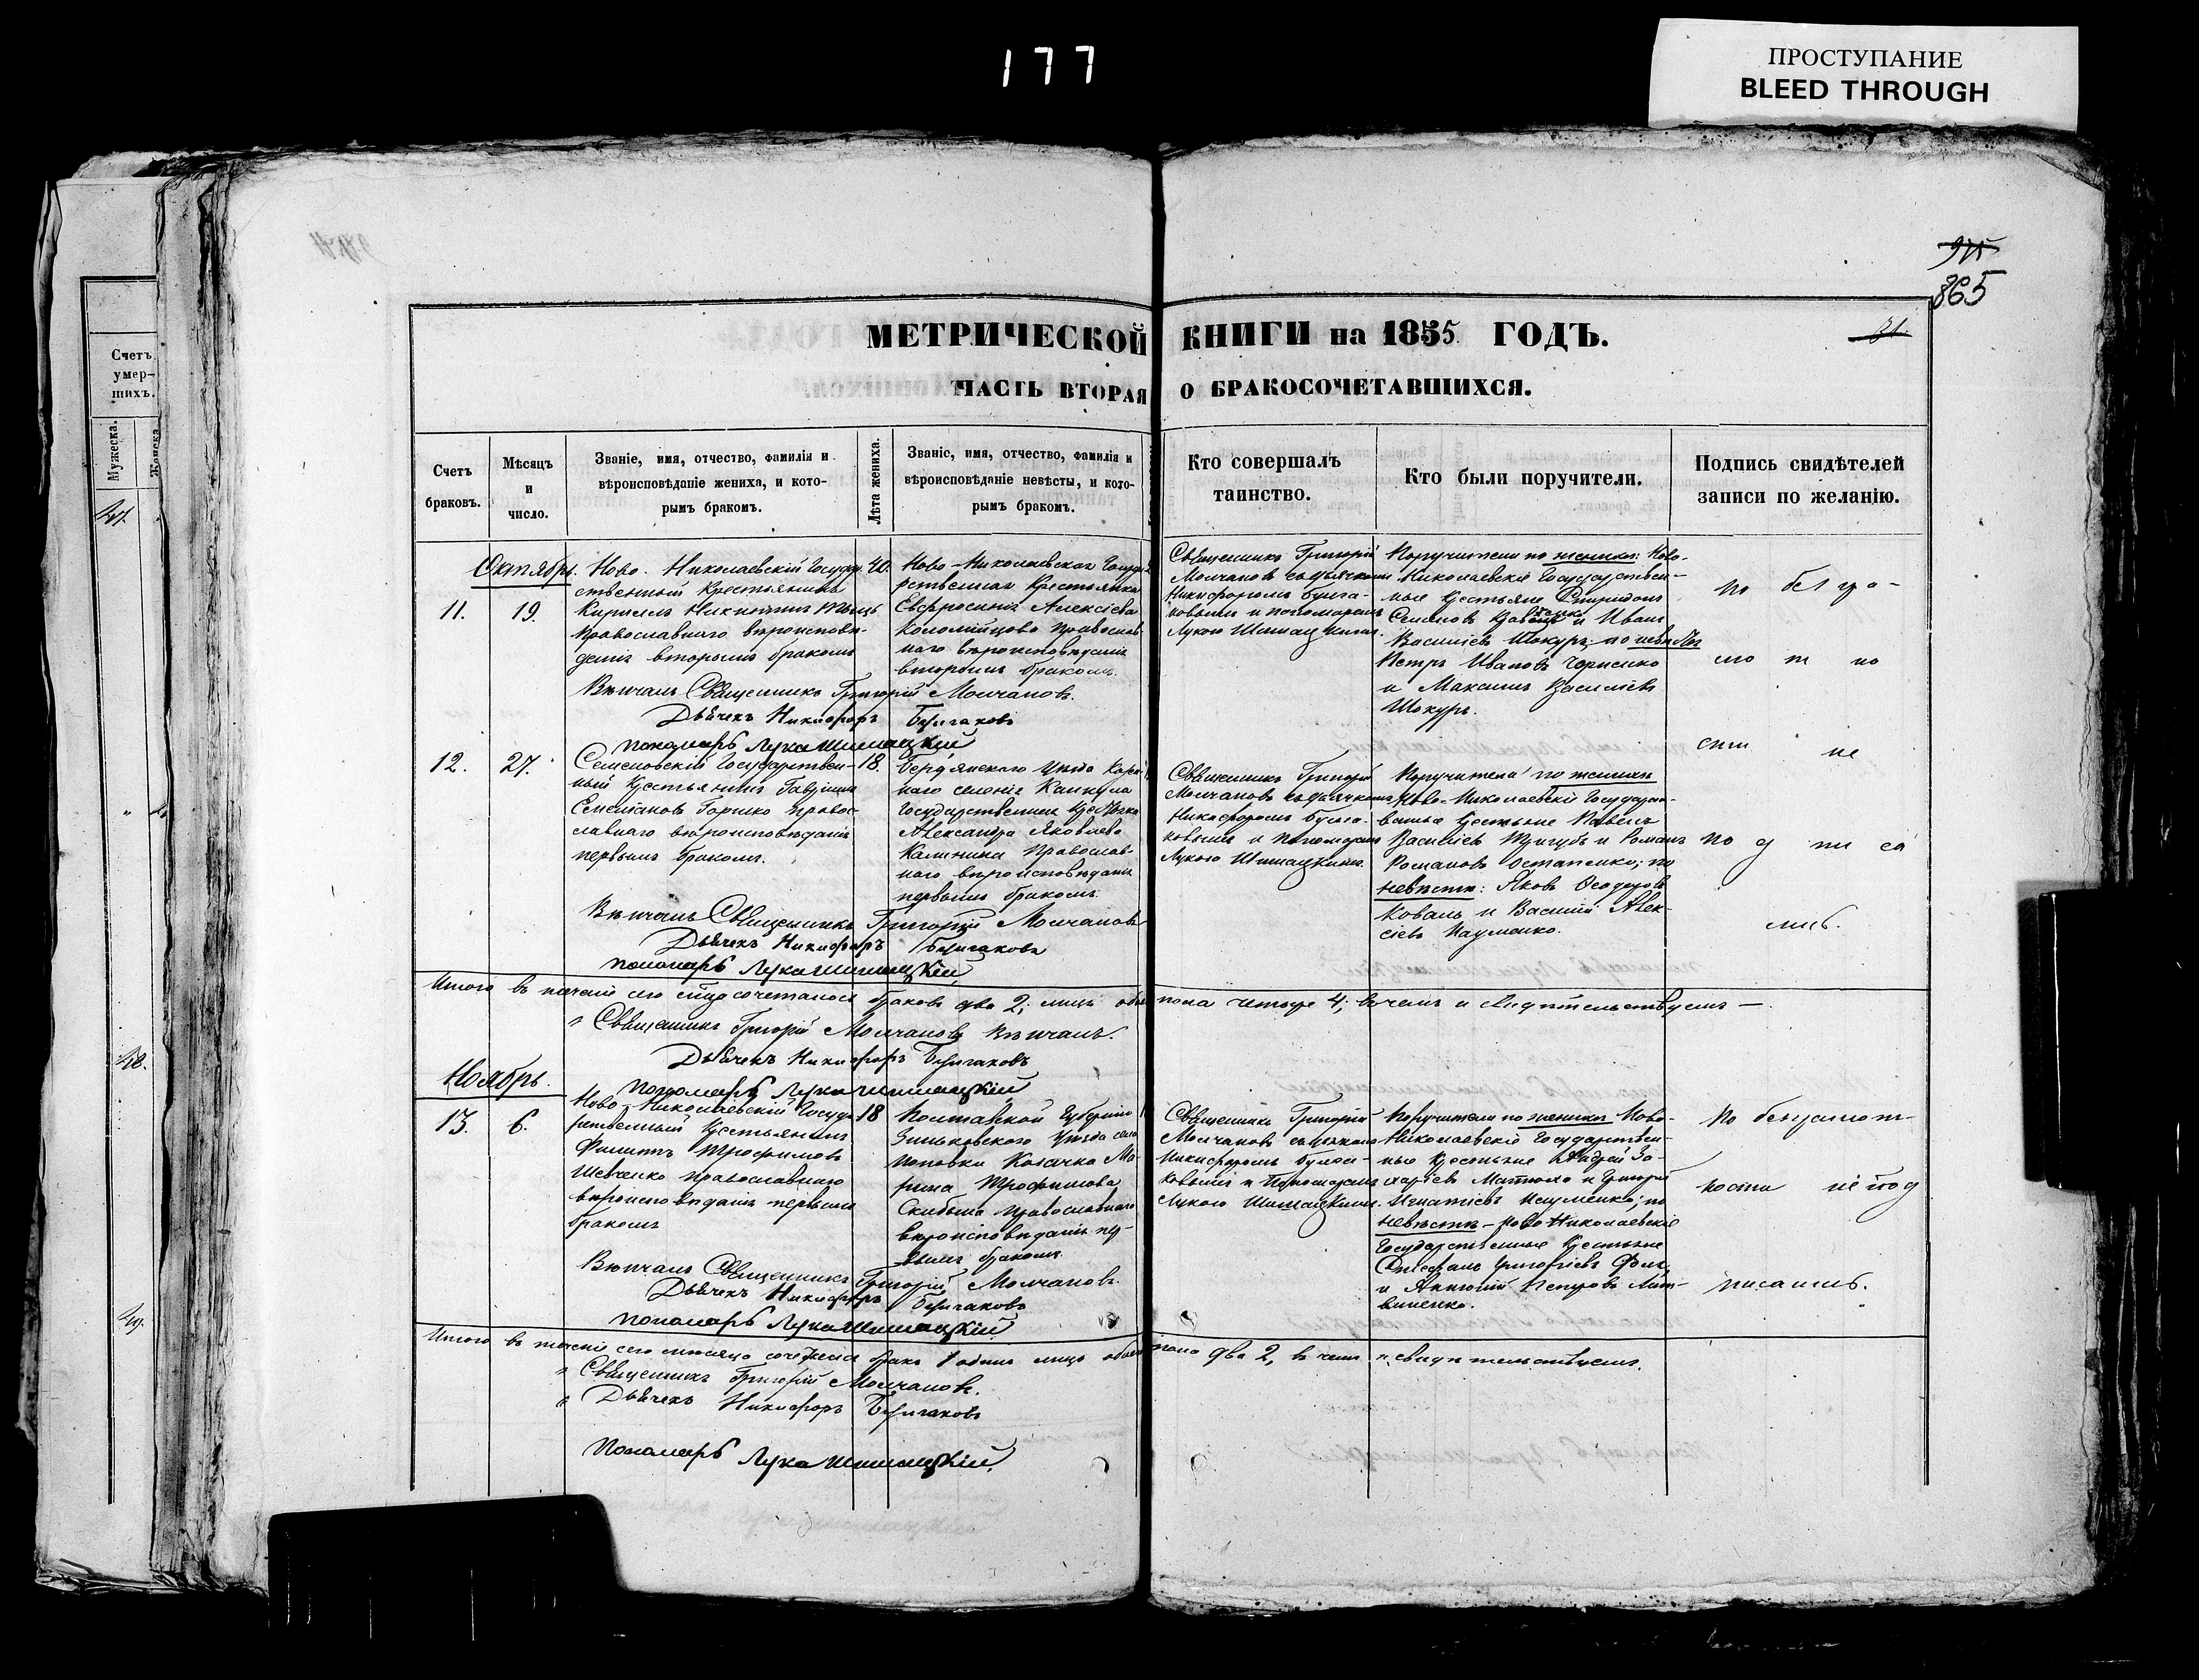 177
ПРОСТУПАНИЕ
BLEED THROUGH
865
31.
МЕТРИЧЕСКОЙ КНИГИ на 1855 ГОДЪ.
ЧАСТЬ ВТОРАЯ О БРАКОСОЧЕТАВШИХСЯ.
Счетъ
умер-
шихъ.
Мужеска.
Женска.
47.
48.
49.
Счетъ
браковъ.
Мѣсяцъ
и
число.
Званіе, имя, отчество, фамилія и
вѣроисповѣданіе жениха, и кото-
рымъ бракомъ.
Лѣта жениха.
Званіе, имя, отчество, фамилія и
вѣроисповѣданіе невѣсты, и кото-
рымъ бракомъ.
Кто совершалъ
таинство.
Кто были поручители.
Подпись свидѣтелей
записи по желанію.
Октябрь.
11.
19.
Ново-Николаевскій Госуда-
ственный Крестьянинъ
Кириллъ Никитинъ
православнаго вѣроисповѣ-
данія вторымъ бракомъ
40.
Ново-Николаевская Госуда-
рственная Крестьянка
Евфросинія Алексіева
Коломійцова православ-
наго вѣроисповѣданія
вторымъ бракомъ.
Священникъ Григорій
Молчановъ съ дьячкомъ
Никифоромъ Булга-
ковымъ и пономаремъ
Лукою Шишацкимъ.
Поручители по женихѣ: Ново-
Николаевскіе Государствен-
ные Крестьяне Спиридонъ
Семеновъ и Иванъ
Василіевъ Шокуръ; по невѣстѣ
Петръ Ивановъ Черненко
и Максимъ Василіевъ
Шокуръ.
по без гра-
мо т но
сти не
Вѣнчалъ Священникъ Григорій Молчановъ.
Дьячекъ Никифоръ Булгаковъ
Пономарь Лука Шишацкій
12.
27.
Семеновскій Государствен-
ный Крестьянинъ Гавріилъ
Степановъ Горпко право-
славнаго вѣроисповѣданія
первымъ бракомъ.
18.
Бердянскаго Уѣзда Казен-
наго селенія Канкула
Государственная Крестьянка
Александра Яковлева
Калинина Православ-
наго вѣроисповѣданія
первымъ бракомъ.
Священникъ Григорій
Молчановъ съ дьячкомъ
Никифоромъ Булга-
ковымъ и Пономаремъ
Лукою Шишацкимъ.
Поручители по женихѣ
Ново-Николаевскіе Государст-
венные Крестьяне Павелъ
Василіевъ и Романъ
Романовъ Остапенко; по
невѣстѣ: Яковъ Ѳеодоровъ
Коваль и Василій Алек-
сіевъ Науменко.
по д пи са
лись.
Вѣнчалъ Священникъ Григорій Молчановъ
Дьячекъ Никифоръ Булгаковъ
Пономарь Лука Шишацкій
Итого въ теченіе сего м-ца сочеталось браковъ два 2; лицъ обоего пола четыре 4; въ чемъ и свидѣтельствуемъ —
Священникъ Григорій Молчановъ Вѣнчалъ.
Дьячекъ Никифоръ Булгаковъ
Пономарь Лука Шишацкій
Ноябрь.
13.
6.
Ново-Николаевскій Госуда-
рственный Крестьянинъ
Филиппъ Трофимовъ
Шевченко православнаго
вѣроисповѣданія первымъ
бракомъ
18
Полтавской Губерніи
Зиньковскаго Уѣзда села
Поповки Козачка Ма-
рина Трофимова
православнаго
вѣроисповѣданія пер-
вымъ бракомъ.
Священникъ Григорій
Молчановъ съ дьячкомъ
Никифоромъ Булга-
ковымъ и Пономаремъ
Лукою Шишацкимъ.
Поручители по женихѣ Ново-
Николаевскіе Государствен-
ные Крестьяне Андрей За-
харіевъ Матюха и Григорій
Игнатіевъ Науменко; по
невѣстѣ — Ново Николаевскіе
Государственные Крестьяне
Григоріевъ
и Антоній Петровъ Лит-
виненко.
по безграмот-
ности не под
писались.
Вѣнчалъ Священникъ Григорій Молчановъ.
Дьячекъ Никифоръ Булгаковъ
Пономарь Лука Шишацкій
Итого въ теченіе сего мѣсяца сочетался бракъ 1 одинъ лицъ обоего пола два 2, въ чемъ и свидѣтельствуемъ.
Священникъ Григорій Молчановъ.
Дьячекъ Никифоръ Булгаковъ
Пономарь Лука Шишацкій.